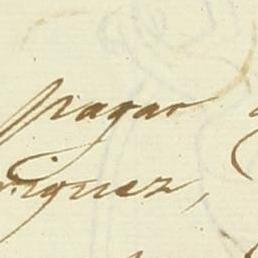 pagar
riguez,